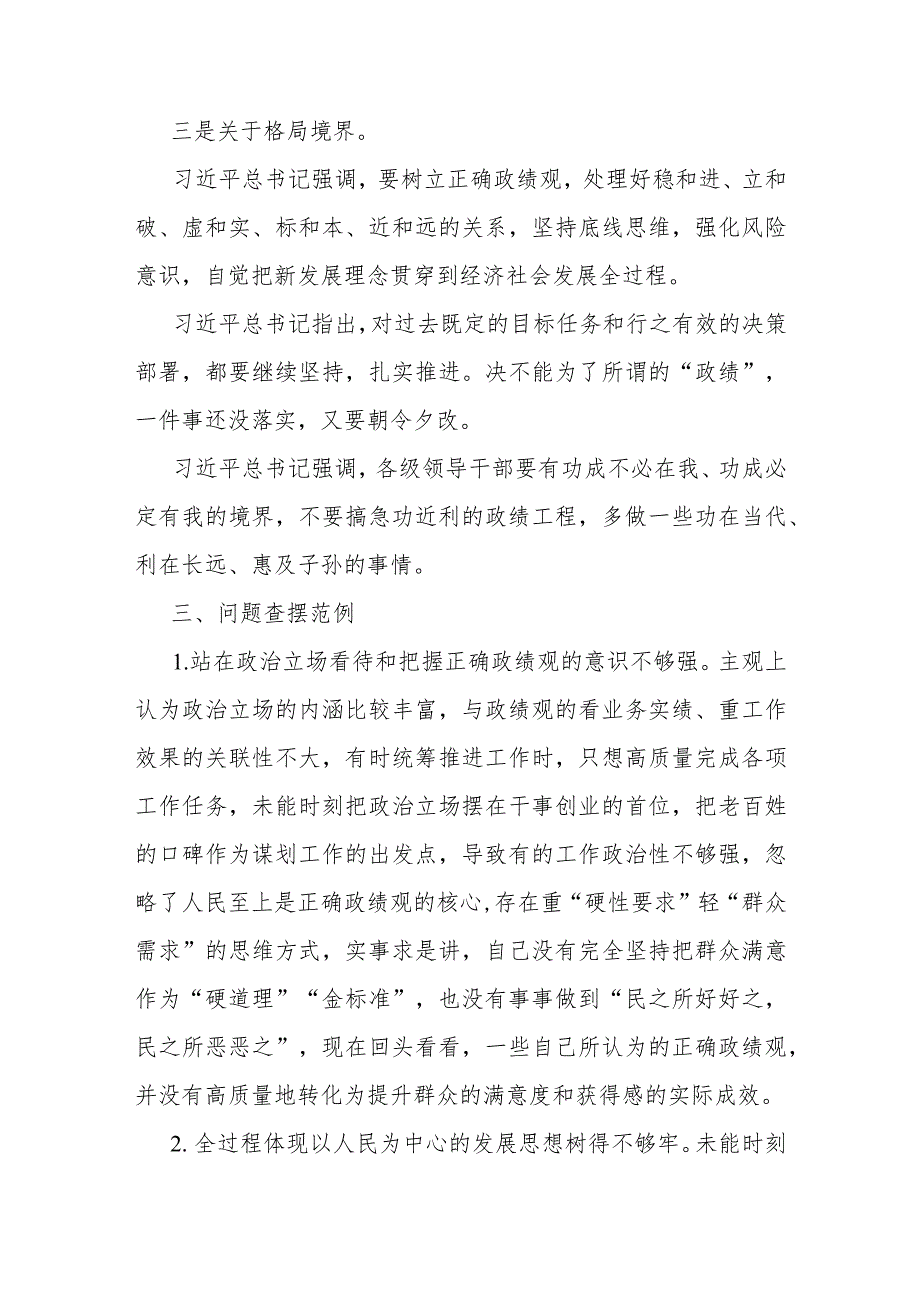 三是关于格局境界。
习近平总书记强调，要树立正确政绩观，处理好稳和进、立和
破、虚和实、标和本、近和远的关系，坚持底线思维，强化风险
意识，自觉把新发展理念贯穿到经济社会发展全过程。
习近平总书记指出,对过去既定的目标任务和行之有效的决策
部署，都要继续坚持，扎实推进。决不能为了所谓的“政绩”，
一件事还没落实，又要朝令夕改。
习近平总书记强调，各级领导干部要有功成不必在我、功成必
定有我的境界，不要搞急功近利的政绩工程，多做一些功在当代、
利在长远、惠及子孙的事情。
三、问题查摆范例
1.站在政治立场看待和把握正确政绩观的意识不够强。主观上
认为政治立场的内涵比较丰富，与政绩观的看业务实绩、重工作
效果的关联性不大，有时统筹推进工作时，只想高质量完成各项
工作任务，未能时刻把政治立场摆在干事创业的首位，把老百姓
的口碑作为谋划工作的出发点，导致有的工作政治性不够强，忽
略了人民至上是正确政绩观的核心,存在重“硬性要求”轻“群众
需求”的思维方式，实事求是讲，自己没有完全坚持把群众满意
作为“硬道理”“金标准”，也没有事事做到“民之所好好之，
民之所恶恶之”，现在回头看看，一些自己所认为的正确政绩观，
并没有高质量地转化为提升群众的满意度和获得感的实际成效。
2. 全过程体现以人民为中心的发展思想树得不够牢。未能时刻